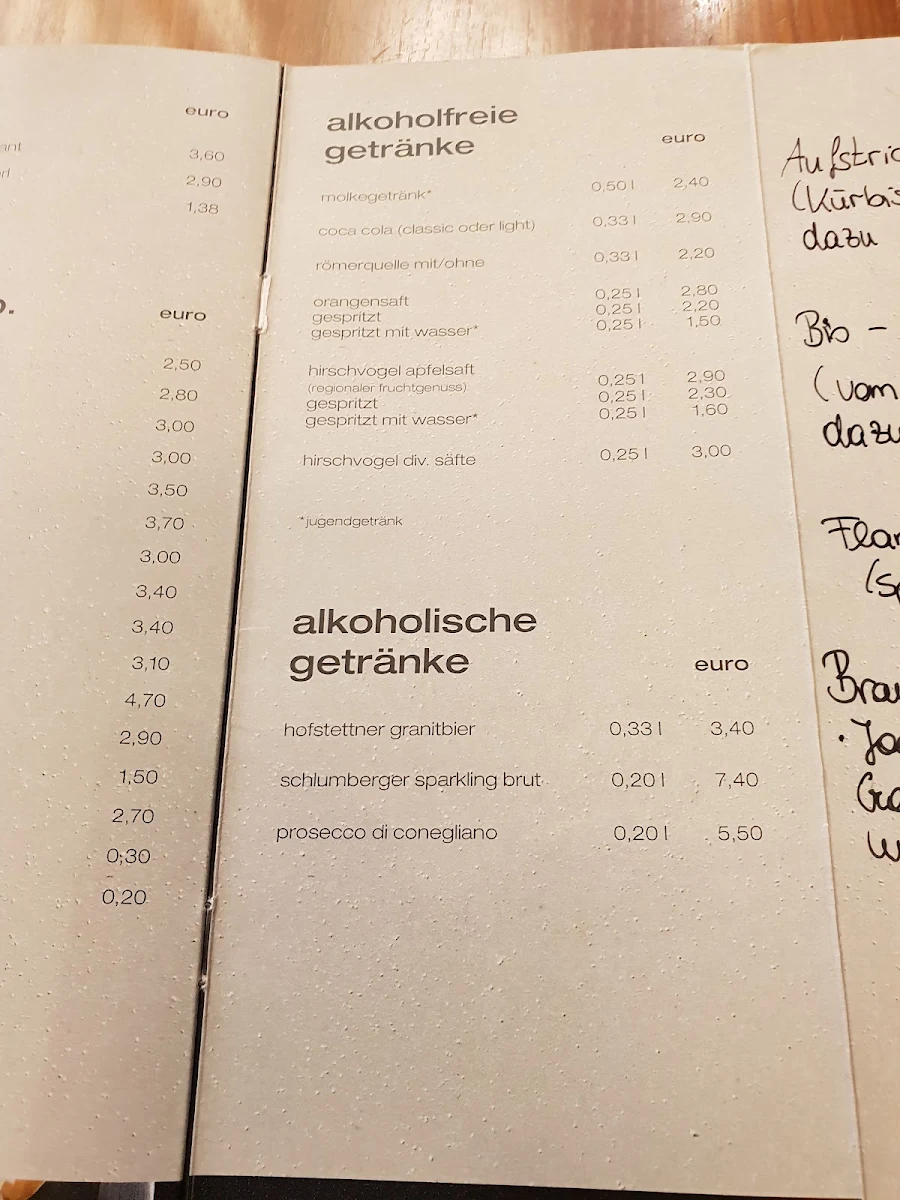 euro
3,60
2,90
1,38
euro
2,50
2,80
3,00
3,00
3,50
3,70
3,00
3,40
3,40
3,10
4,70
2,90
1,50
2,70
0,30
0,20
alkoholfreie
getränke
euro
molkegetränk* 0,50 l 2,40
coca cola (classic oder light) 0,33 l 2,90
römerquelle mit/ohne 0,33 l 2,20
orangensaft 0,25 l 2,80
gespritzt 0,25 l 2,20
gespritzt mit wasser* 0,25 l 1,50
hirschvogel apfelsaft 0,25 l 2,90
(regionaler fruchtgenuss)
gespritzt 0,25 l 2,30
gespritzt mit wasser* 0,25 l 1,60
hirschvogel div. säfte 0,25 l 3,00
*jugendgetränk
alkoholische
getränke
euro
hofstettner granitbier 0,33 l 3,40
schlumberger sparkling brut 0,20 l 7,40
prosecco di conegliano 0,20 l 5,50
dazu
Bio -
(vom